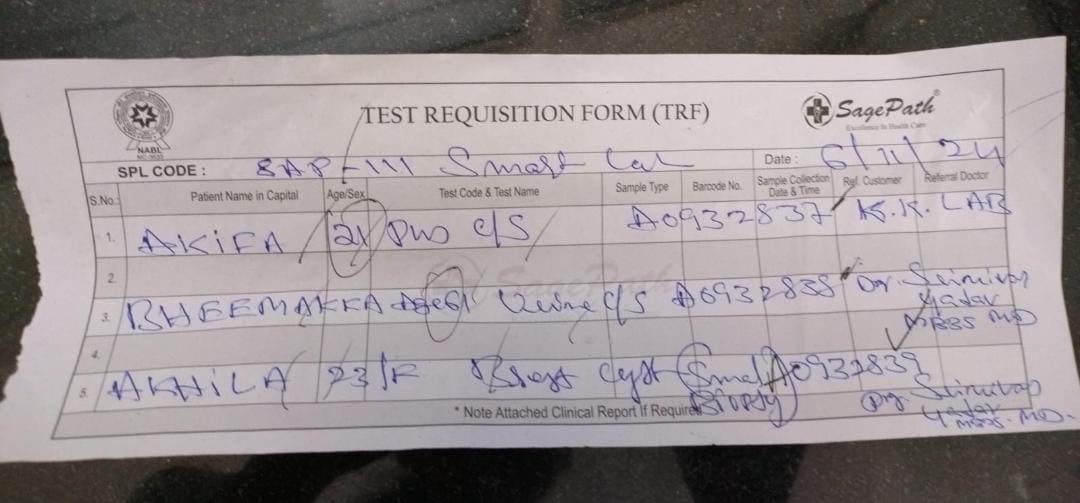 TEST REQUISITION FORM (TRF)
SagePath®
Excellence In Health Care
NABL
SPL CODE : SAP-111 Smart Lab
Date : 6/11/24
S.No. Patient Name in Capital Age/Sex Test Code & Test Name Sample Type Barcode No. Sample Collection Date & Time Ref. Customer Referral Doctor
1. AKIFA 21 Pus c/s A0932837 K.K. LAB
2.
3. BHEEMAKKA Age 61 Urine c/s A0932838 Dr. Srinivas Yadav MBBS MD
4.
5. AKHILA 23/F Breast Cyst (Small Biopsy) A0932839 Dr. Srinivas Yadav MBBS. MD.
* Note Attached Clinical Report If Required
SagePath